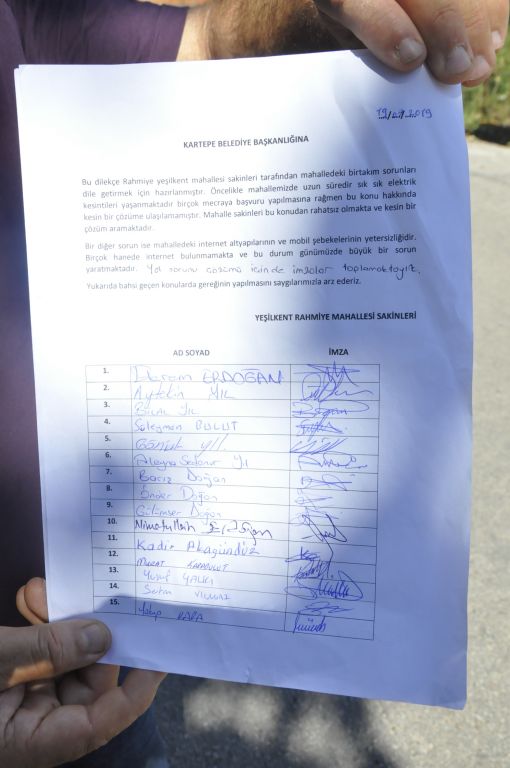 KARTEPE BELEDİYE BAŞKANLIĞINA
Bu dilekçe Rahmiye yeşilkent mahallesi sakinleri tarafından mahalledeki birtakım sorunları
dile getirmek için hazırlanmıştır. Öncelikle mahallemizde uzun süredir sık sık elektrik
kesintileri yaşanmaktadır birçok mecraya başvuru yapılmasına rağmen bu konu hakkında
kesin bir çözüme ulaşılamamıştır. Mahalle sakinleri bu konudan rahatsız olmakta ve kesin bir
çözüm aramaktadır.
Bir diğer sorun ise mahalledeki internet altyapılarının ve mobil şebekelerinin yetersizliğidir.
Birçok hanede internet bulunmamakta ve bu durum günümüzde büyük bir sorun
yaratmaktadır. Yol sorunu çözümü içinde imzalar toplamaktayız.
Yukarıda bahsi geçen konularda gereğinin yapılmasını saygılarımızla arz ederiz.
YEŞİLKENT RAHMİYE MAHALLESİ SAKİNLERİ
AD SOYAD İMZA
1. ERDOĞAN
2. Aytekin
3.
4. Süleyman BULUT
5.
6.
7. Doğan
8. Önder Doğan
9. Gülümser Doğan
10.
11. Kadir Akagündüz
12. MURAT KARABULUT
13. Yusuf YALKI
14. YILMAZ
15. Yakup KARA